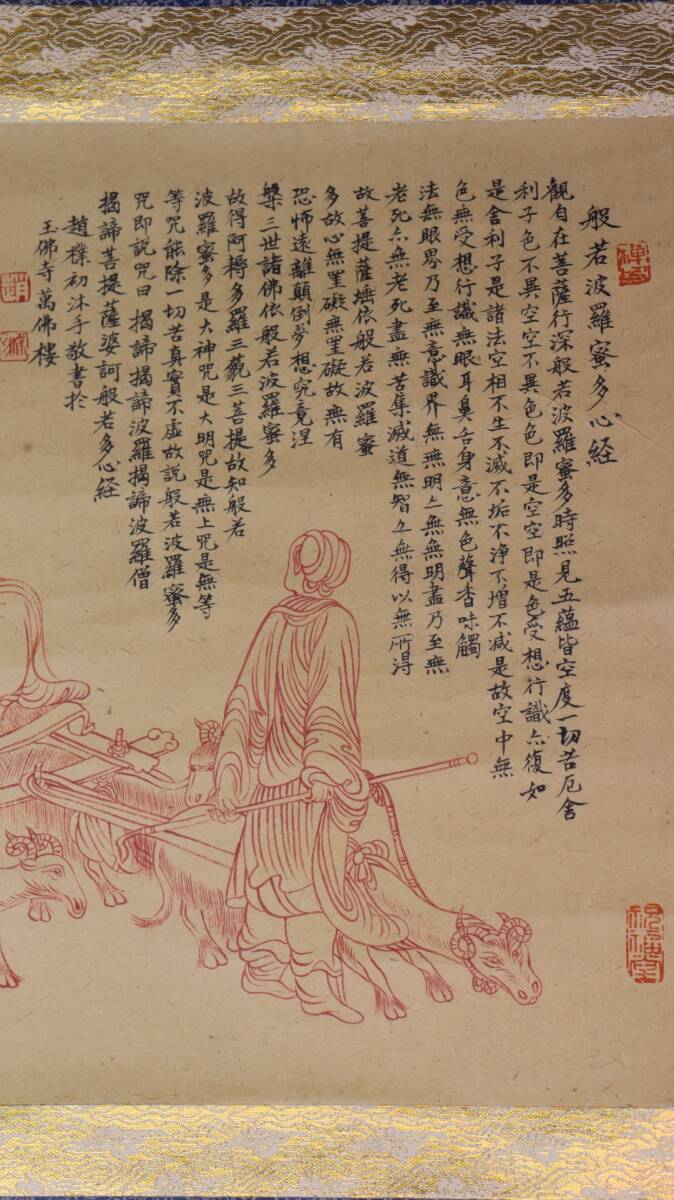 般若波羅蜜多心経
觀自在菩薩行深般若波羅蜜多時照見五蘊皆空度一切苦厄舍
利子色不異空空不異色色即是空空即是色受想行識亦復如
是舍利子是諸法空相不生不滅不垢不淨不增不减是故空中無
色無受想行識無眼耳鼻舌身意無色聲香味觸
法無眼界乃至無意識界無無明亦無無明盡乃至無
老死亦無老死盡無苦集滅道無智亦無得以無所得
故菩提薩埵依般若波羅蜜
多故心無罣礙無罣礙故無有
恐怖遠離顛倒夢想究竟涅
槃三世諸佛依般若波羅蜜多
故得阿耨多羅三藐三菩提故知般若
波羅蜜多是大神咒是大明咒是無上咒是無等
等咒能除一切苦真實不虛故説般若波羅蜜多
咒即説咒曰揭諦揭諦波羅揭諦波羅僧
揭諦菩提薩婆訶般若多心経
趙樸初沐手敬書於
玉佛寺萬佛樓